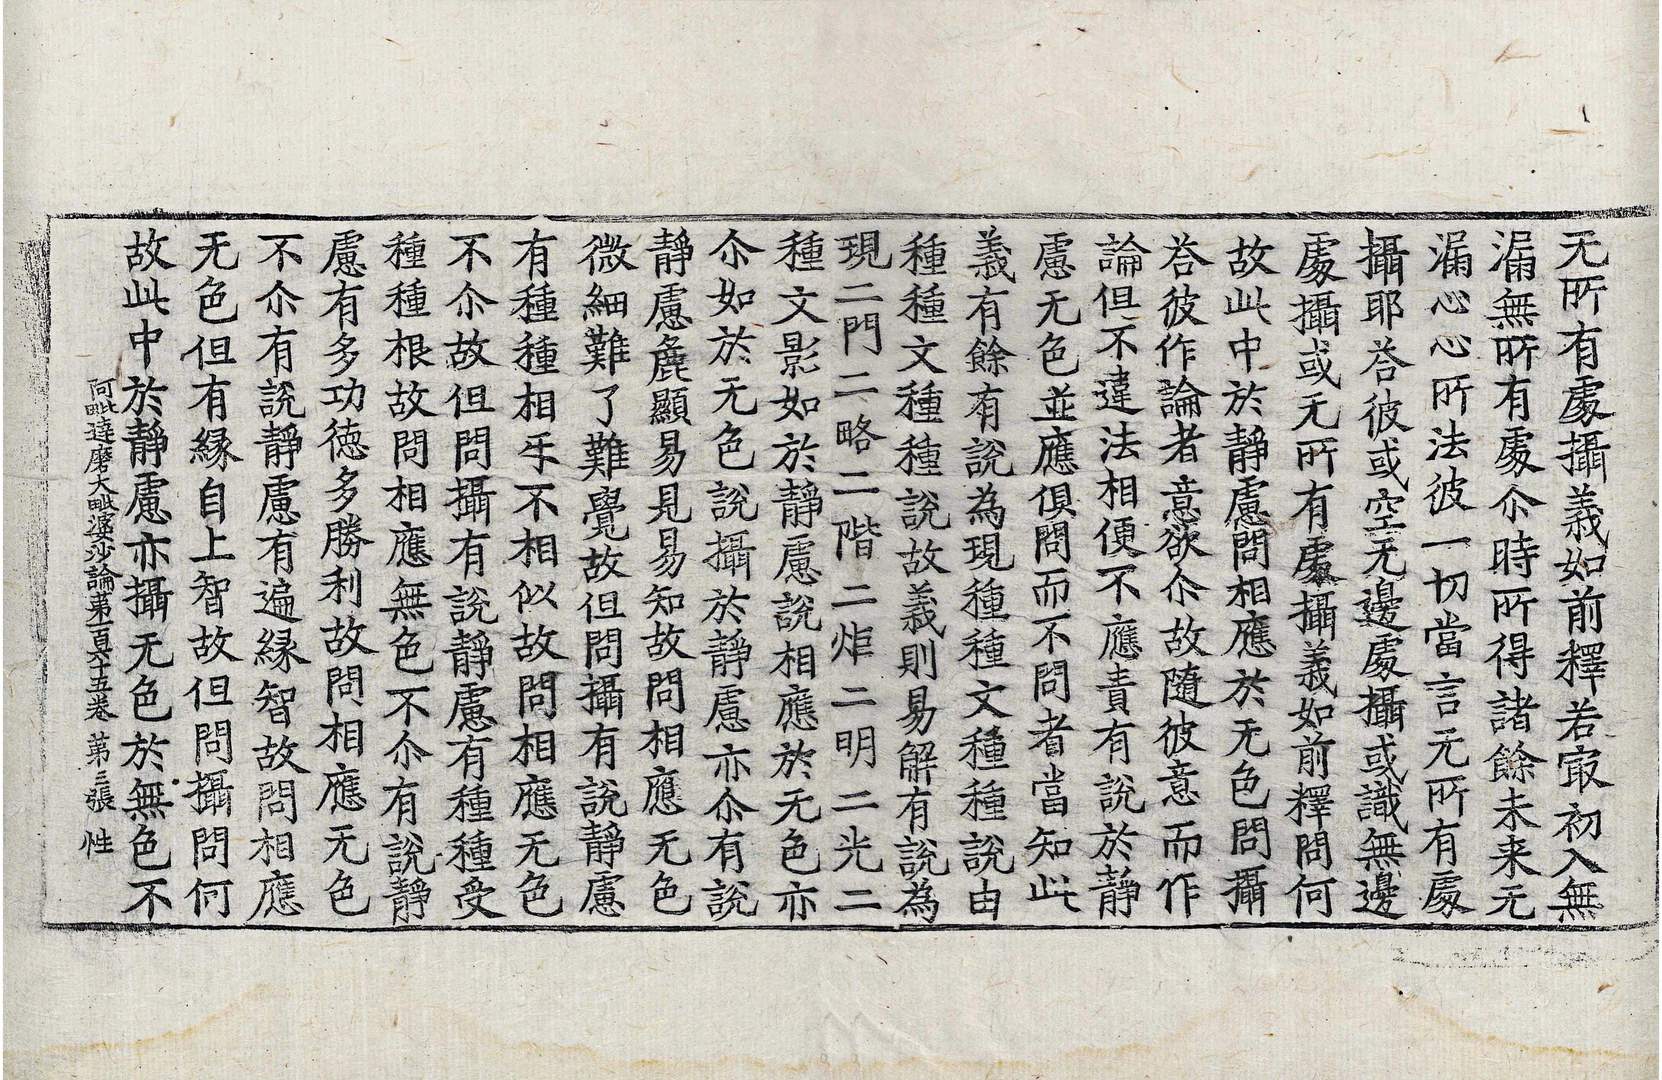 无所有處攝義如前釋若㝡初入無
漏無所有處尒時所得諸餘未来无
漏心心所法彼一切當言无所有處
攝耶荅彼或空无邊處攝或識無邊
處攝或无所有處攝義如前釋問何
故此中於靜慮問相應於无色問攝
荅彼作論者意欲尒故隨彼意而作
論但不違法相便不應責有說於靜
慮无色並應俱問而不問者當知此
義有餘有說為現種種文種種說由
種種文種種說故義則易解有說為
現二門二略二階二炬二明二光二
種文影如於靜慮說相應於无色亦
尒如於无色說攝於靜慮亦尒有說
靜慮麁顯易見易知故問相應无色
微細難了難覺故但問攝有說靜慮
有種種相㸦不相似故問相應无色
不尒故但問攝有說靜慮有種種受
種種根故問相應無色不尒有說靜
慮有多功徳多勝利故問相應无色
不尒有說靜慮有遍縁智故問相應
无色但有縁自上智故但問攝問何
故此中於靜慮亦攝无色於無色不
阿毗達磨大毗婆沙論第一百六十五卷 第三張 性